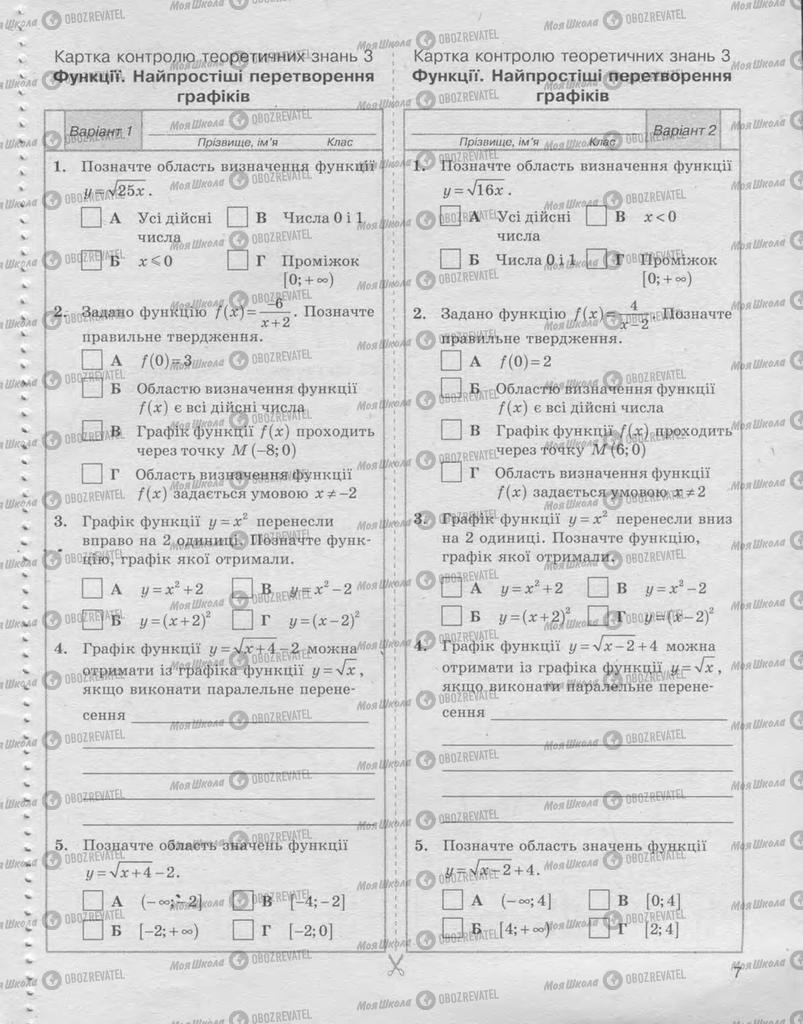 Картка контролю теоретичних знань 3
Функції. Найпростіші перетворення
графіків
Варіант 1
Прізвище, ім'я Клас
1. Позначте область визначення функції
y=√25x.
А Усі дійсні числа
В Числа 0 і 1
Б x⩽0
Г Проміжок [0; +∞)
2. Задано функцію f(x)=-6/(x+2). Позначте
правильне твердження.
А f(0)=3
Б Областю визначення функції
f(x) є всі дійсні числа
В Графік функції f(x) проходить
через точку M(-8; 0)
Г Область визначення функції
f(x) задається умовою x≠-2
3. Графік функції y=x² перенесли
вправо на 2 одиниці. Позначте функ-
цію, графік якої отримали.
А y=x²+2 В y=x²-2
Б y=(x+2)² Г y=(x-2)²
4. Графік функції y=√x+4-2 можна
отримати із графіка функції y=√x,
якщо виконати паралельне перене-
сення
5. Позначте область значень функції
y=√x+4-2.
А (-∞; -2] В [-4; -2]
Б [-2; +∞) Г [-2; 0]
Картка контролю теоретичних знань 3
Функції. Найпростіші перетворення
графіків
Варіант 2
Прізвище, ім'я Клас
1. Позначте область визначення функції
y=√16x.
А Усі дійсні числа
В x<0
Б Числа 0 і 1
Г Проміжок [0; +∞)
2. Задано функцію f(x)=4/(x-2). Позначте
правильне твердження.
А f(0)=2
Б Областю визначення функції
f(x) є всі дійсні числа
В Графік функції f(x) проходить
через точку M(6; 0)
Г Область визначення функції
f(x) задається умовою x≠2
3. Графік функції y=x² перенесли вниз
на 2 одиниці. Позначте функцію,
графік якої отримали.
А y=x²+2 В y=x²-2
Б y=(x+2)² Г y=(x-2)²
4. Графік функції y=√x-2+4 можна
отримати із графіка функції y=√x,
якщо виконати паралельне перене-
сення
5. Позначте область значень функції
y=√x-2+4.
А (-∞; 4] В [0; 4]
Б [4; +∞) Г [2; 4]
7
Моя Школа OBOZREVATEL